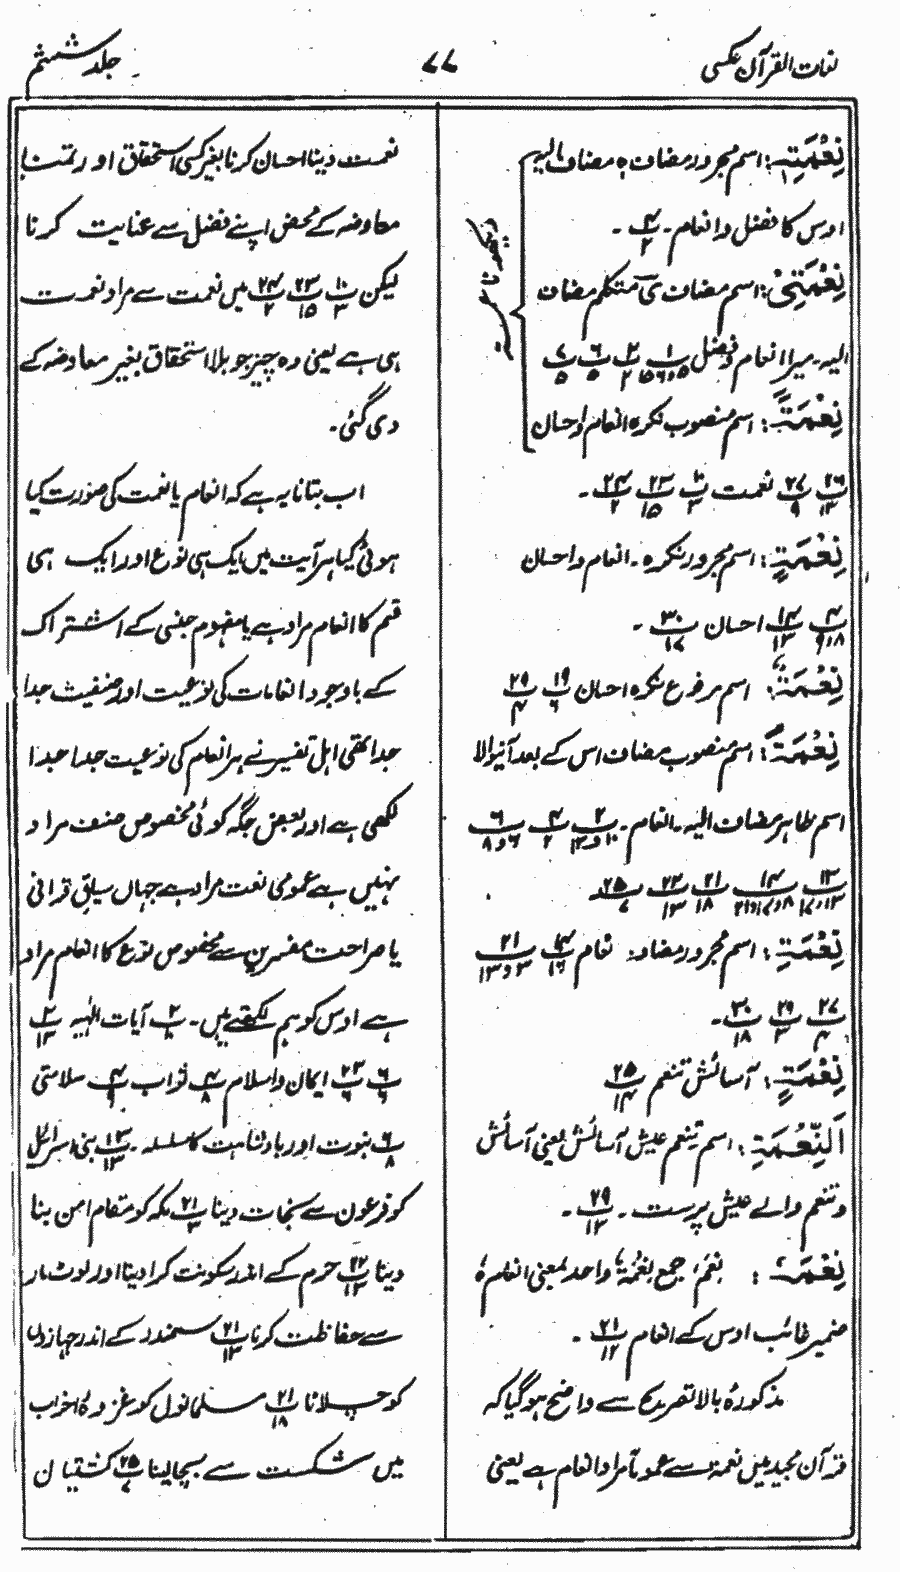 لغات القرآن عکسی
۷۷
جلد ششم
نِعْمَتِہٖ: اسم مجرور مضاف ہٖ مضاف الیہ
اوس کا فضل وانعام۔ ۴/۲ ۔
نِعْمَتِیْ: اسم مضاف یَ متکلم مضاف
الیہ۔ میرا انعام وفضل ۱/۱۵و۶و۵ ۲/۲ ۶/۵ ۷/۵
نِعْمَۃً: اسم منصوب نکرہ انعام واحسان
دیکھو نا
۲۶/۱۲ ۲۷/۹ نعمت ۲۳/۱۵ ۲۴/۲ ۔
نِعْمَۃٍ: اسم مجرور نکرہ۔ انعام واحسان
۴/۹و۸ ۱۴/۱۳ احسان ۳۰/۱۷ ۔
نِعْمَۃٌ: اسم مرفوع نکرہ احسان ۱۹/۶ ۲۹/۴
نِعْمَۃَ: اسم منصوب مضاف اس کے بعد آنیوالا
اسم ظاہر مضاف الیہ۔ انعام۔ ۲/۱۰و۱۴ ۴/۲ ۶/۶و۸
۱۳/۱۳و۱۷ ۱۴/۸و۱۷و۲۱ ۲۱/۱۸ ۲۲/۱۳ ۲۵/۷
نِعْمَۃِ: اسم مجرور مضاف انعام ۱۴/۱۶ ۲۱/۳و۱۳
۲۷/۴ ۲۹/۳ ۳۰/۱۸ ۔
نِعْمَۃٍ: آسائش تنعم ۲۵/۱۴
اَلنِّعْمَۃِ: اسم تنعم عیش آسائش یعنی آسائش
وتنعم والے عیش پرست ۔ ۲۹/۱۳ ۔
نِعَمَہٗ: نِعَمٌ جمع نِعْمَۃٌ واحد بمعنی انعام ہٗ
ضمیر غائب اوس کے انعام ۲۱/۱۲ ۔
مذکورہ بالا تصریح سے واضح ہوگیا کہ
قرآن مجید میں نعمۃ سے عموماً مراد انعام ہے یعنی
نعمت دینا احسان کرنا بغیر کسی استحقاق اور تمنا
معاوضہ کے محض اپنے فضل سے عنایت کرنا
لیکن ۱۰/۳ ۲۳/۱۵ ۲۴/۲ میں نعمت سے مراد نعمت
ہی ہے یعنی وہ چیز جو بلا استحقاق بغیر معاوضہ کے
دی گئی۔
اب بتانا یہ ہے کہ انعام یا نعمت کی صورت کیا
ہوئی کیا ہر آیت میں ایک ہی نوع اور ایک ہی
قسم کا انعام مراد ہے یا مفہوم جنسی کے اشتراک
کے باوجود انعامات کی نوعیت اور صنفیت جدا
جدا تھی اہل تفسیر نے ہر انعام کی نوعیت جدا جدا
لکھی ہے اور بعض جگہ کوئی مخصوص صنف مراد
نہیں ہے عمومی نعمت مراد ہے جہاں سیاق قرآنی
یا صراحت مفسرین سے مخصوص نوع کا انعام مراد
ہے اوس کو ہم لکھتے ہیں۔ ۲/۸ آیات الٰہیہ ۲/۱۳
۶/۶ ۲۳/۶ ایمان واسلام ۴/۸ ثواب ۴/۹ سلامتی
۶/۸ نبوت اور بادشاہت کا سلسلہ ۔ ۱۳/۱۳ بنی اسرائیل
کو فرعون سے نجات دینا ۲۱/۳ مکہ کو مقام امن بنا
دینا ۲۲/۱۲ حرم کے اندر سکونت کرا دینا اور لوٹ مار
سے حفاظت کرنا ۲۱/۱۳ سمندر کے اندر جہازوں
کو چلانا ۲۱/۱۸ مسلمانوں کو غزوۂ احزاب
میں شکست سے بچا لینا ۲۵/۷ کشتیاں